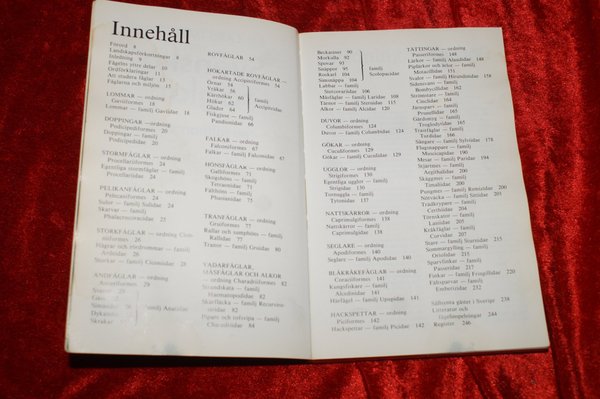 Innehåll
Förord 6
Landskapsförkortningar 8
Inledning 9
Fågelns yttre delar 10
Ordförklaringar 11
Att studera fåglar 12
Fåglarna och miljön 15
LOMMAR — ordning
Gaviiformes 18
Lommar — familj Gaviidae 18
DOPPINGAR — ordning
Podicipediformes 20
Doppingar — familj
Podicipedidae 20
STORMFÅGLAR — ordning
Procellariiformes 24
Egentliga stormfåglar — familj
Procellariidae 24
PELIKANFÅGLAR — ordning
Pelecaniformes 24
Sulor — familj Sulidae 24
Skarvar — familj
Phalacrocoracidae 25
STORKFÅGLAR — ordning
Hägrar och rördrommar — familj
Ardeidae 26
Storkar — familj Ciconiidae 28
ANDFÅGLAR — ordning
Anseriformes 29
Svanar 29
Gäss
Anatidae
ROVFÅGLAR 54
HÖKARTADE ROVFÅGLAR —
ordning Accipitriformes 54
Örnar 54
Vråkar 56
Kärrhökar
Hökar 62
Glador 64
familj
Accipitridae
Fiskgjuse — familj
Pandionidae 66
FALKAR — ordning
Falconiformes 67
Falkar — familj Falconidae 67
HÖNSFÅGLAR — ordning
Galliformes 72
Skogshöns — familj
Tetraonidae 72
Fälthöns — familj
Phasianidae 76
TRANFÅGLAR — ordning
Gruiformes 77
Rallar och sumphöns — familj
Rallidae 77
Tranor — familj Gruidae 80
VADARFÅGLAR,
MÅSFÅGLAR OCH ALKOR
— ordning Charadriiformes 82
Strandskator — familj
Haematopodidae 82
Skärfläcka — familj Recurviro-
stridae 82
Pipare och tofsvipa — familj
Charadriidae 84
Beckasiner 90
Morkulla 92
Spovar 93
Snäppor 95
Roskarl 104
Simsnäppa 104
familj
Scolopacidae
Labbar — familj
Stercorariidae 106
Måsfåglar — familj Laridae 108
Tärnor — familj Sternidae 115
Alkor — familj Alcidae 120
DUVOR — ordning
Columbiformes 124
Duvor — familj Columbidae 124
GÖKAR — ordning
Cuculiformes 129
Gökar — familj Cuculidae 129
UGGLOR — ordning
Strigiformes 130
Egentliga ugglor — familj
Strigidae 130
Tornuggla — familj
Tytonidae 137
NATTSKÄRROR — ordning
Caprimulgiformes 138
Nattskärror — familj
Caprimulgidae 138
SEGLARE — ordning
Apodiformes 140
Seglare — familj Apodidae 140
BLÅKRÅKEFÅGLAR — ordning
Coraciiformes 141
Kungsfiskare — familj
Alcedinidae 141
Härfågel — familj Upupidae 141
HACKSPETTAR — ordning
Piciformes 142
Hackspettar — familj Picidae 142
TÄTTINGAR — ordning
Passeriformes 148
Lärkor — familj Alaudidae 148
Piplärkor och ärlor — familj
Motacillidae 151
Svalor — familj Hirundinidae 158
Sidensvans — familj
Bombycillidae 162
Strömstare — familj
Cinclidae 164
Järnsparv — familj
Prunellidae 165
Gärdsmyg — familj
Troglodytidae 165
Trastfåglar — familj
Turdidae 166
Sångare — familj Sylviidae 178
Flugsnappare — familj
Muscicapidae 190
Mesar — familj Paridae 194
Stjärtmes — familj
Aegithalidae 200
Skäggmes — familj
Timaliidae 200
Pungmes — familj Remizidae 200
Nötväcka — familj Sittidae 201
Trädkrypare — familj
Certhiidae 204
Törnskator — familj
Laniidae 205
Kråkfåglar — familj
Corvidae 207
Stare — familj Sturnidae 215
Sommargylling — familj
Oriolidae 215
Sparvfinkar — familj
Passeridae 217
Finkar — familj Fringillidae 220
Fältsparvar — familj
Emberizidae 232
Sällsynta gäster i Sverige 238
Litteratur och
fågelinspelningar 244
Register 246